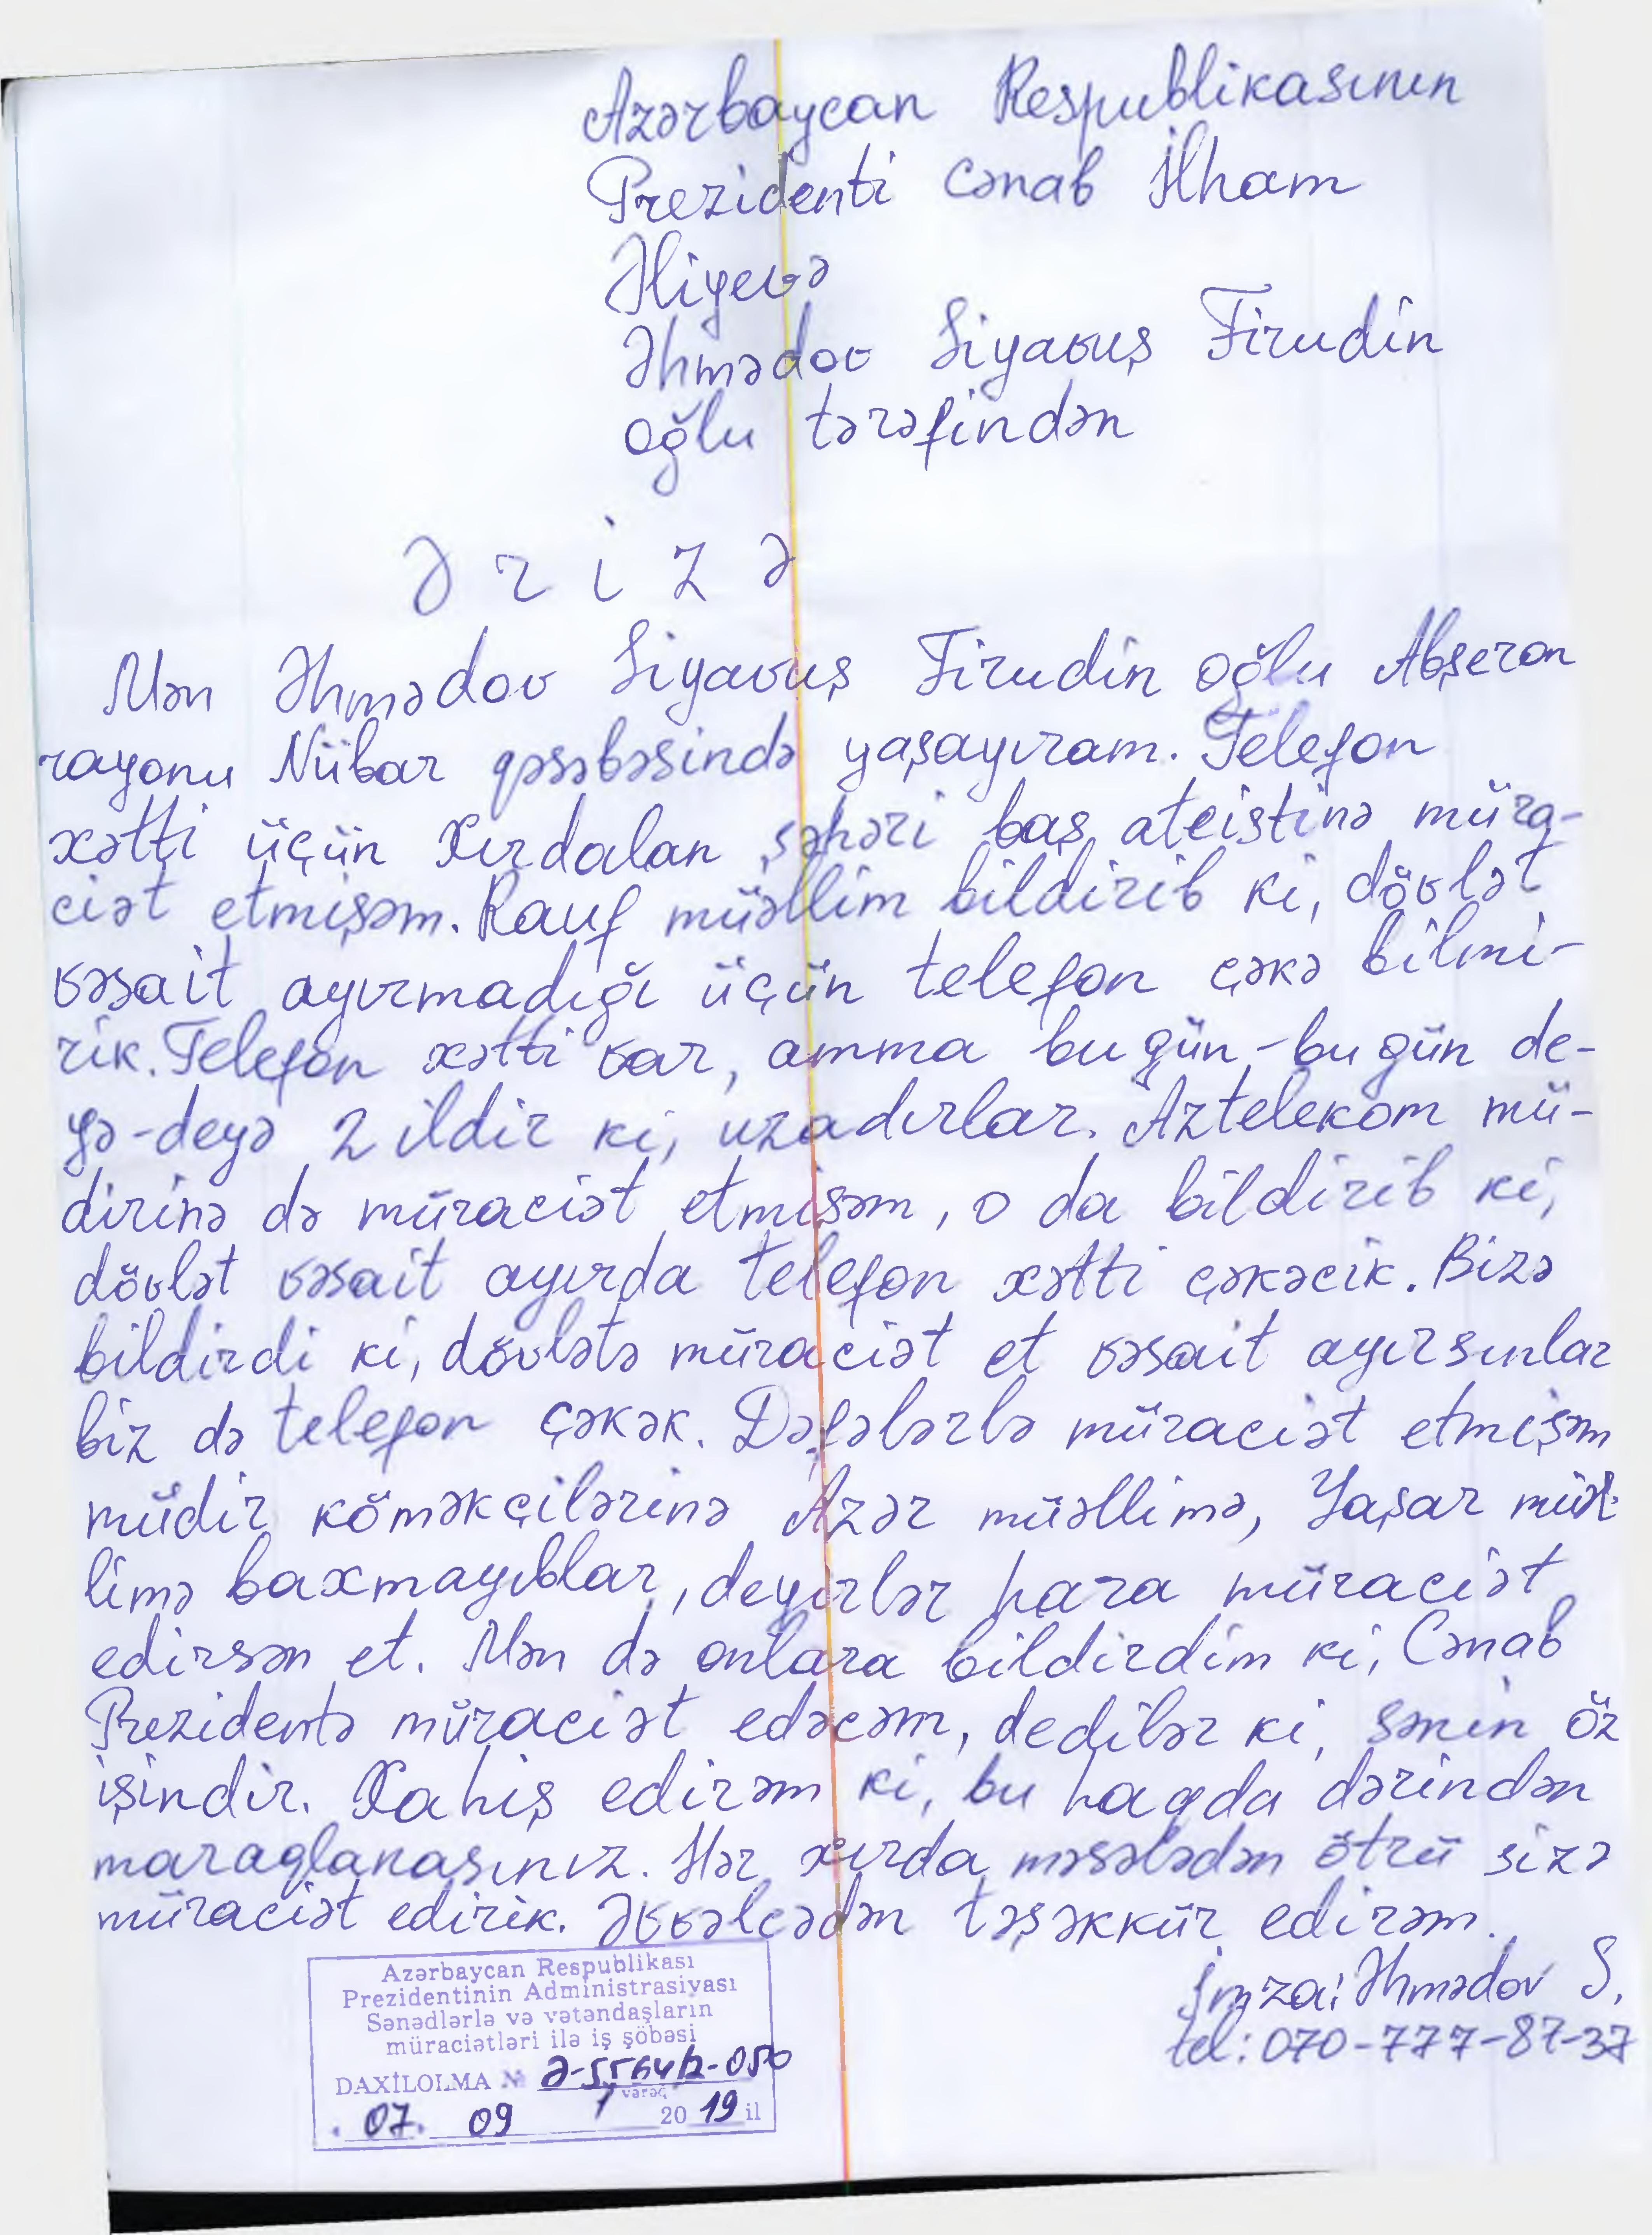 Azərbaycan Respublikasının
Prezidenti cənab İlham
Əliyevə
Əhmədov Siyavuş Firudin
oğlu tərəfindən
Ə r i z ə
Mən Əhmədov Siyavuş Firudin oğlu Abşeron
rayonu Nübar qəsəbəsində yaşayıram. Telefon
xətti üçün Xırdalan şəhəri baş ateistinə müra-
ciət etmişəm. Rauf müəllim bildirib ki, dövlət
vəsait ayırmadığı üçün telefon çəkə bilmi-
rik. Telefon xətti var, amma bu gün-bu gün de-
yə-deyə 2 ildir ki, uzadırlar. Aztelekom mü-
dirinə də müraciət etmişəm, o da bildirib ki,
dövlət vəsait ayırda telefon xətti çəkəcik. Bizə
bildirdi ki, dövlətə müraciət et vəsait ayırsınlar
biz də telefon çəkək. Dəfələrlə müraciət etmişəm
müdir köməkçilərinə Azər müəllimə, Yaşar müəl-
limə baxmayıblar, deyirlər hara müraciət
edirsən et. Mən də onlara bildirdim ki, Cənab
Prezidentə müraciət edəcəm, dedilər ki, sənin öz
işindir. Xahiş edirəm ki, bu haqda dərindən
maraqlanasınız. Hər xırda məsələdən ötrü sizə
müraciət edirik. Əvvəlcədən təşəkkür edirəm.
İmza: Əhmədov S.
tel: 070-777-87-37
Azərbaycan Respublikası
Prezidentinin Administrasiyası
Sənədlərlə və vətəndaşların
müraciətləri ilə iş şöbəsi
DAXİLOLMA № Ə-5564/2-050
1 vərəq
07. 09 2019 il